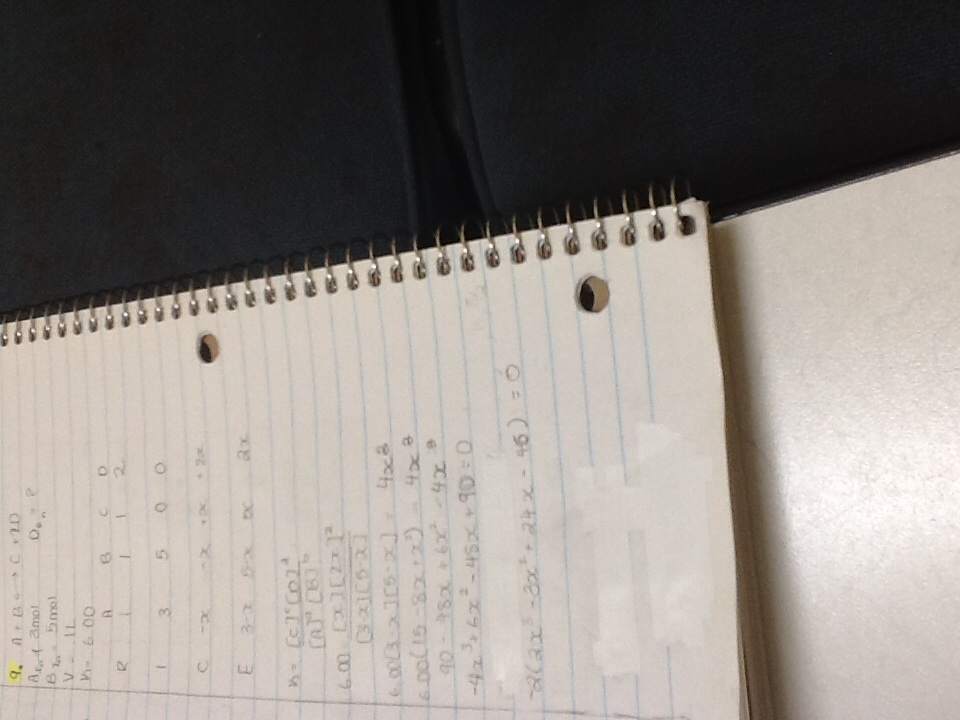 9. A + B ↔ C + 2D
A In = 3mol D e n = ?
B In = 5mol
V = 1L
K = 6.00
A B C D
R 1 1 1 2
I 3 5 0 0
C -x -x +x +2x
E 3-x 5-x x 2x
K = [C]ᶜ[D]ᵈ
[A]ᵃ [B]ᵇ
6.00 = [x][2x]²
[3-x][5-x]
6.00[3-x][5-x] = 4x³
6.00(15 - 8x + x²) = 4x³
90 - 48x + 6x² - 4x³
-4x³ + 6x² - 48x + 90 = 0
-2(2x³ - 3x² + 24x - 45) = 0